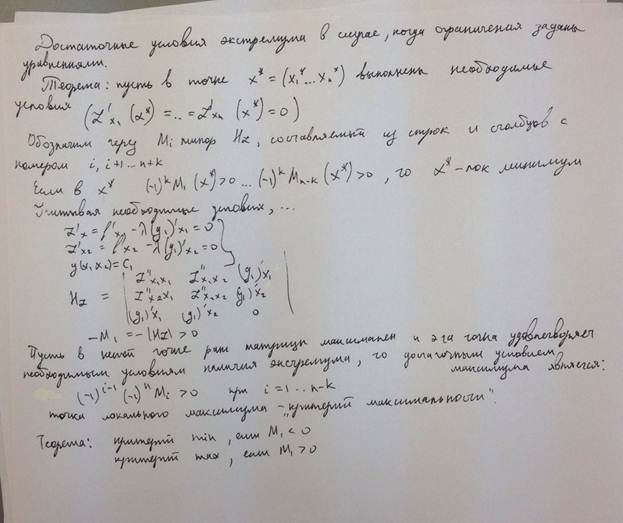 Достаточные условия экстремума в случае, когда ограничения заданы
уравнениями.
Теорема: пусть в точке x* = (x₁*...xₙ*) выполнены необходимые
условия (L'x₁ (x*) = ... = L'xₙ (x*) = 0)
Обозначим через Mᵢ минор H_L, составленный из строк и столбцов с
номером i, i+1 ... n+k
Если в x* (-1)ᵏM₁(x*)>0 ... (-1)ᵏMₙ₋ₖ(x*)>0, то x* - лок минимум
Учитывая необходимые условия, ...
L'x₁ = f'x₁ - λ(g₁)'x₁ = 0
L'x₂ = f'x₂ - λ(g₁)'x₂ = 0
g(x₁x₂) = C₁
L''x₁x₁ L''x₁x₂ (g₁)'x₁
H_L = L''x₂x₁ L''x₂x₂ (g₁)'x₂
(g₁)'x₁ (g₁)'x₂ 0
-M₁ = -|H_L| > 0
Пусть в некот точке ранг матрицы максимален и эта точка удовлетворяет
необходимым условиям наличия экстремума, то достаточным условием
максимума является:
(-1)ⁱ⁻¹ (-1)ⁿ Mᵢ > 0 при i = 1...n-k
точка локального максимума - "критерий максимальности".
Теорема: критерий min, если M₁ < 0
критерий max, если M₁ > 0